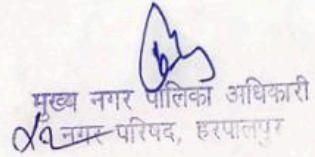 मुख्य नगर पालिका अधिकारी
नगर परिषद, हरपालपुर